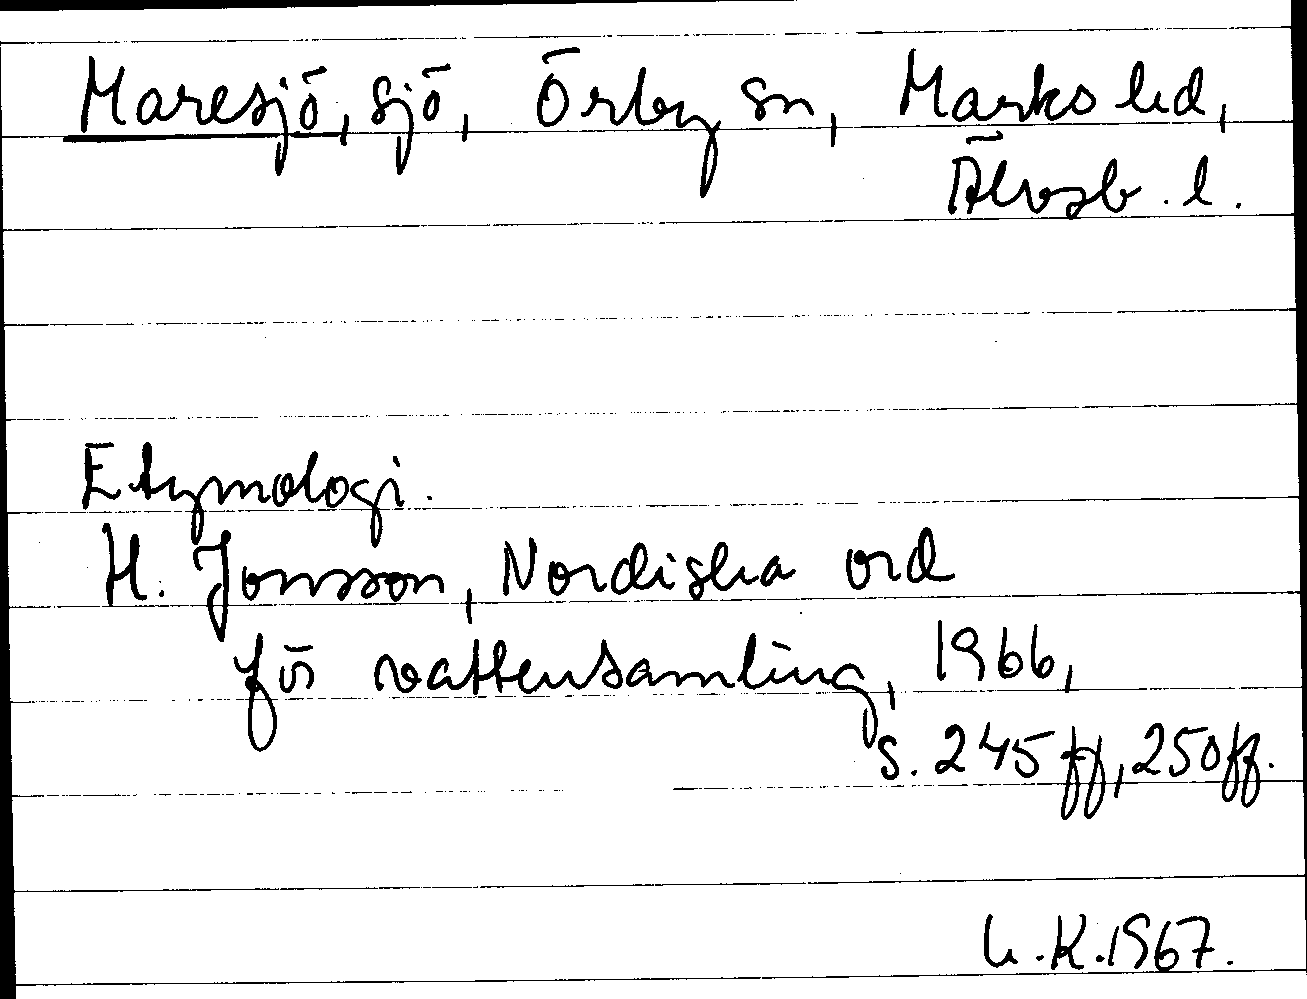 Maresjö, sjö, Örby sn, Marks hd,
Älvsb. l.
Etymologi.
H. Jonsson, Nordiska ord
för vattensamling, 1966,
s. 245 ff, 250 ff.
K. 1967.